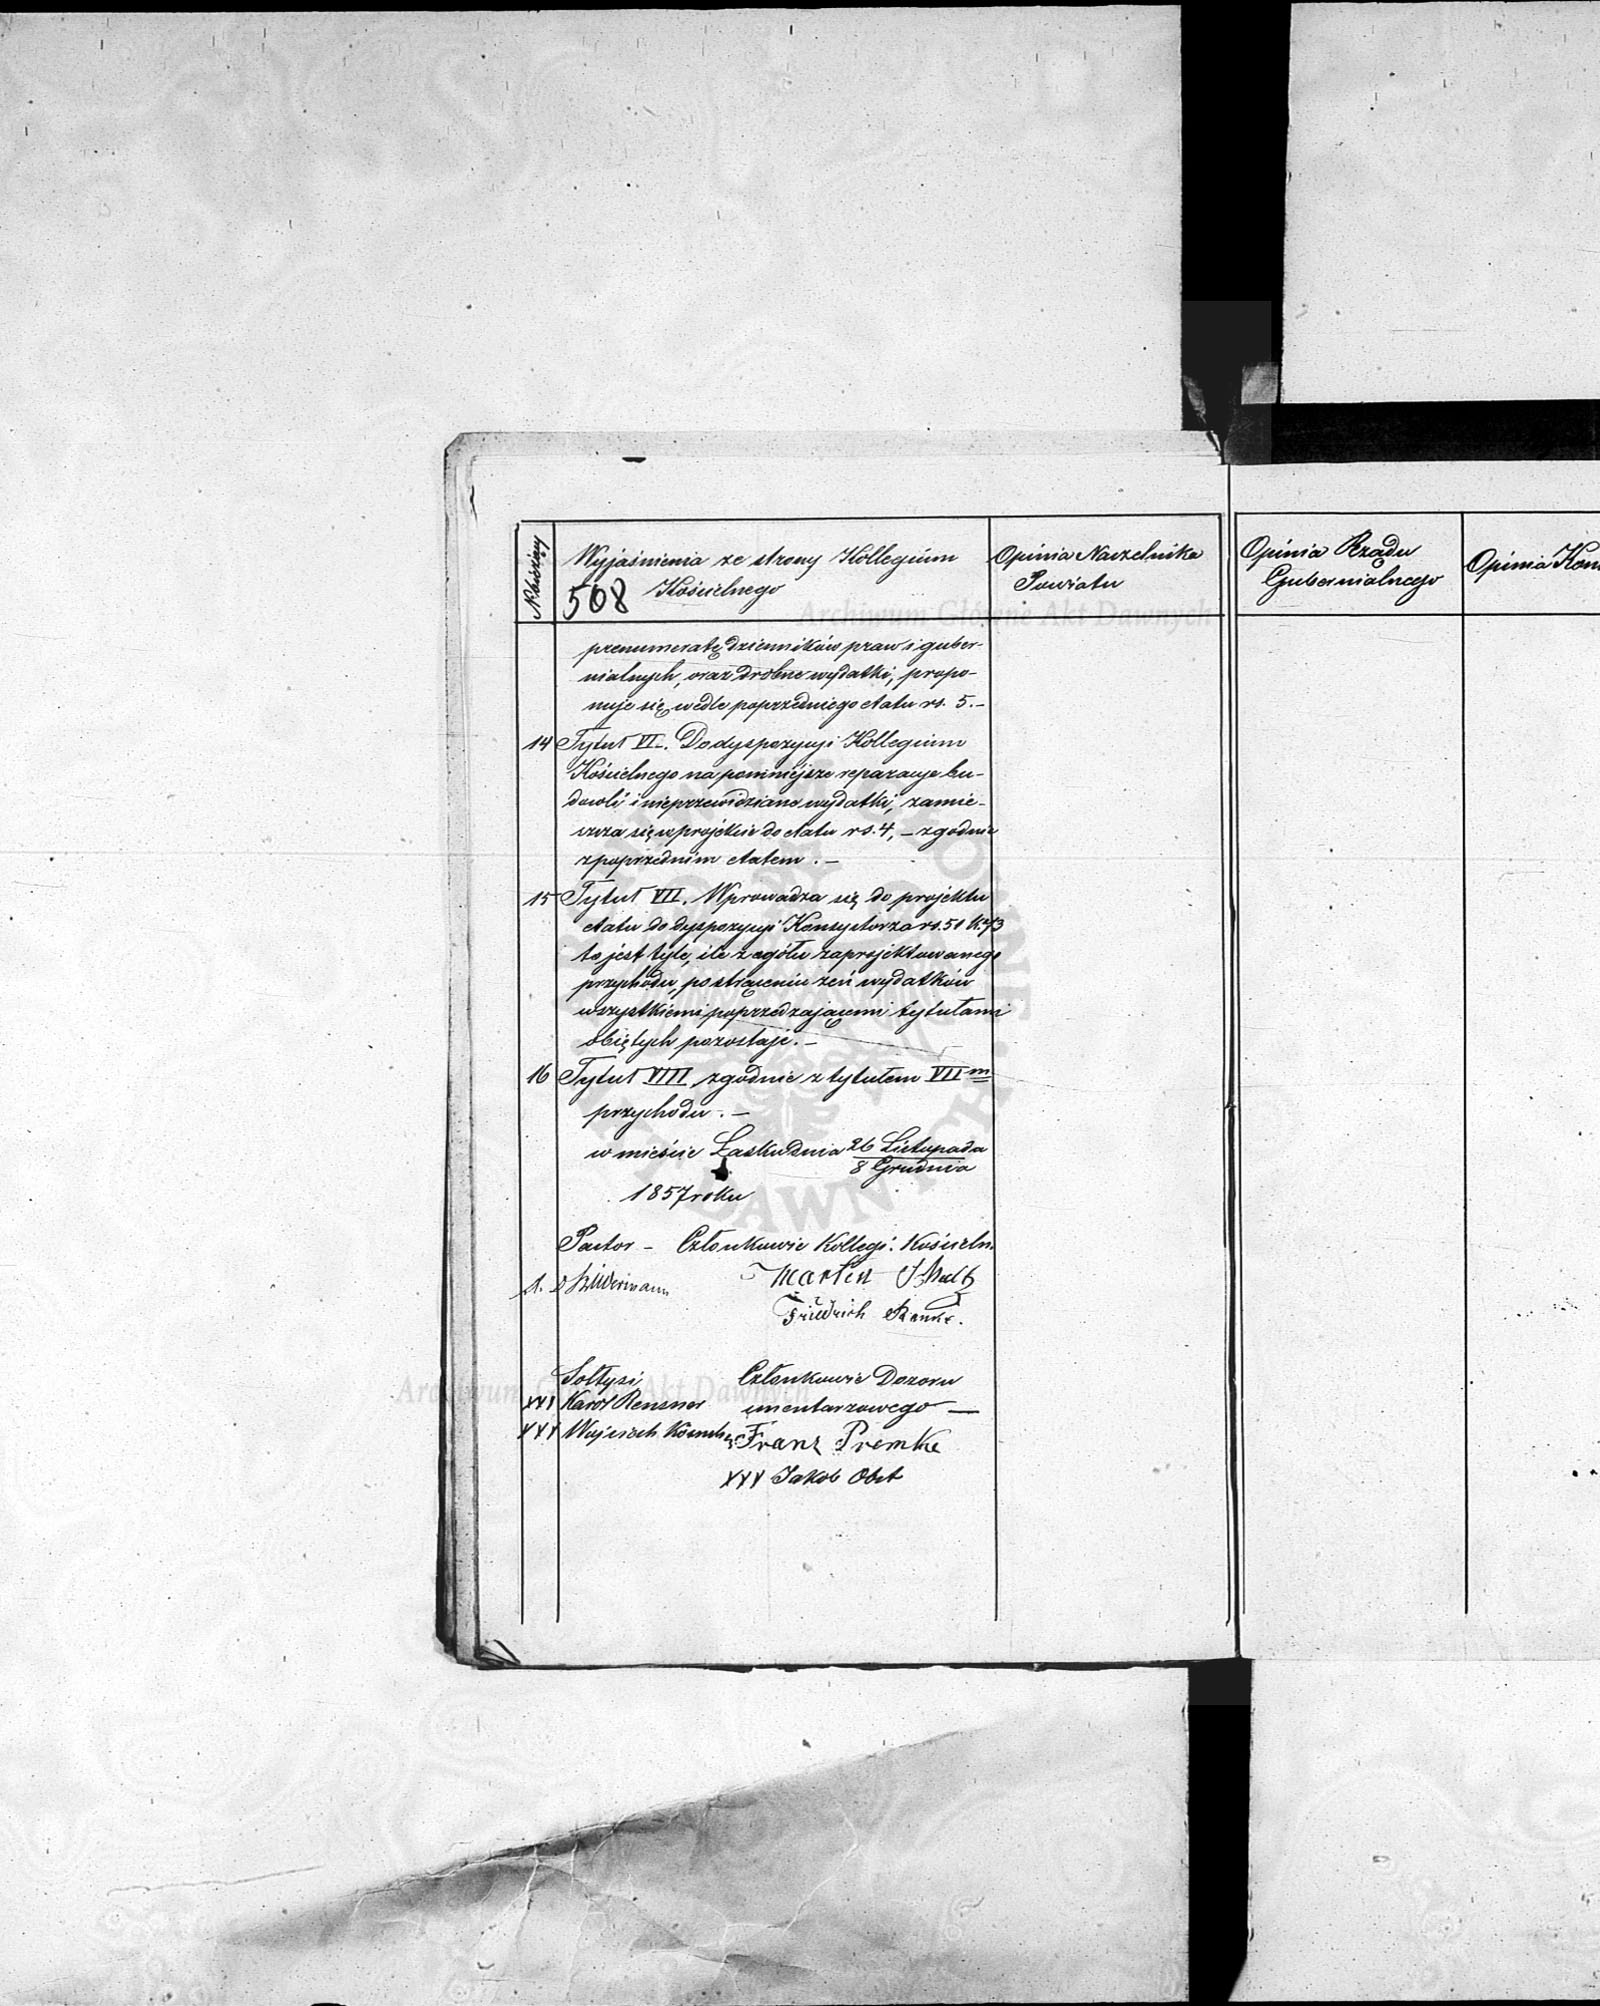 N. bieżący
Wyjaśnienia ze strony Kollegium
Kościelnego
508
Opinia Naczelnika
Powiatu
Opinia Rządu
Gubernialnego
Opinia Kon
prenumeratę dzienników praw i guber-
nialnych, oraz drobne wydatki, propo-
nuje się wedle poprzedniego etatu rs. 5.-
14 Tytuł VI. Do dyspozycyi Kollegium
Kościelnego na pomniejsze reparacye bu-
dowli i nieprzewidziane wydatki, zamie-
szcza się w projekcie do etatu rs. 4, - zgodnie
z poprzednim etatem. -
15 Tytuł VII. Wprowadza się do projektu
etatu do dyspozycyi Konsystorza rs. 51 k. 73
to jest tyle, ile z ogółu zaprojektowanego
przychodu, po strąceniu zeń wydatków
wszystkiemi poprzedzającemi tytułami
objętych pozostaje. -
16 Tytuł VIII, zgodnie z tytułem VII m
przychodu. -
w mieście Łasku dnia 26 Listopada
8 Grudnia
1857 roku
Pastor - Członkowie Kollegi. Kościeln.
Martin
Friedrich
Sołtysi, Członkowie Dozoru
XXX Karol Rensner cmentarzowego —
XXX Wojciech Franz Premke
XXX Jakob Obst
Archiwum Główne Akt Dawnych
Archiwum Główne Akt Dawnych